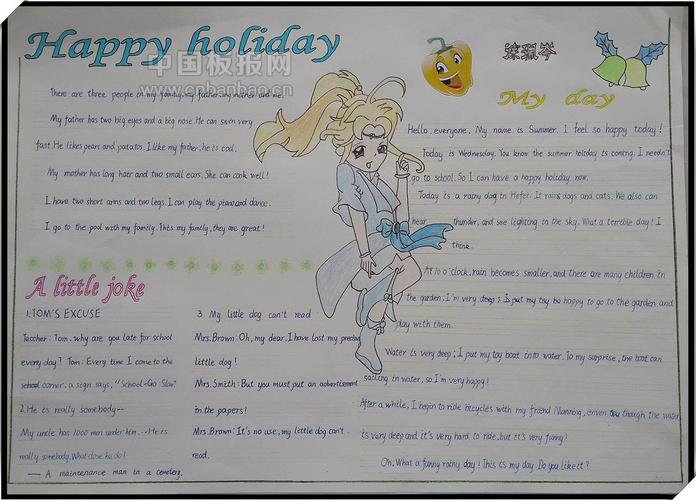 Happy holiday
中国板报网
www.cnbanbao.cn
There are three people in my family, my father, my mother and me.
My father has two big eyes and a big nose. He can swim very
fast. He likes pears and potatos. I like my father, he is cool.
My mother has long hair and two small ears. She can cook well!
I have two short arms and two legs. I can play the piano and dance.
I go to the pool with my family. This my family, they are great!
A little joke
1.TOM'S EXCUSE
Teacher: Tom. why are you late for school
every day? Tom: Every time I come to the
school corner, a sign says, "School-Go Slow"
2.He is really somebody--
My uncle has 1000 men under him. --He is
really somebody. What does he do?
— A maintenance man in a cemetery.
3. My little dog can't read
Mrs.Brown: Oh, my dear, I have lost my precious
little dog!
Mrs Smith: But you must put an advertisement
in the papers!
Mrs.Brown: It's no use, my little dog can't
read.
My day
Hello, everyone, My name is Summer. I feel so happy today!
Today is Wednesday. You know the summer holiday is coming. I needn't
go to school. So I can have a happy holiday now.
Today is a rainy day in Hefei. It rains dogs and cats. We also can
hear thunder, and see lighting in the sky. What a terrible day! I
think.
At 10 o'clock, rain becomes smaller, and there are many children in
the garden, I'm very
to go to the garden and
play with them.
Water is very deep; I put my toy boat into water. To my surprise, the boat can
sailing in water, so I'm very happy!
After a while, I begin to ride bicycles with my friend
though the water
is very deep and it's very hard to ride, but it's very funny!
Oh, What a funny rainy day! This is my day. Do you like it?